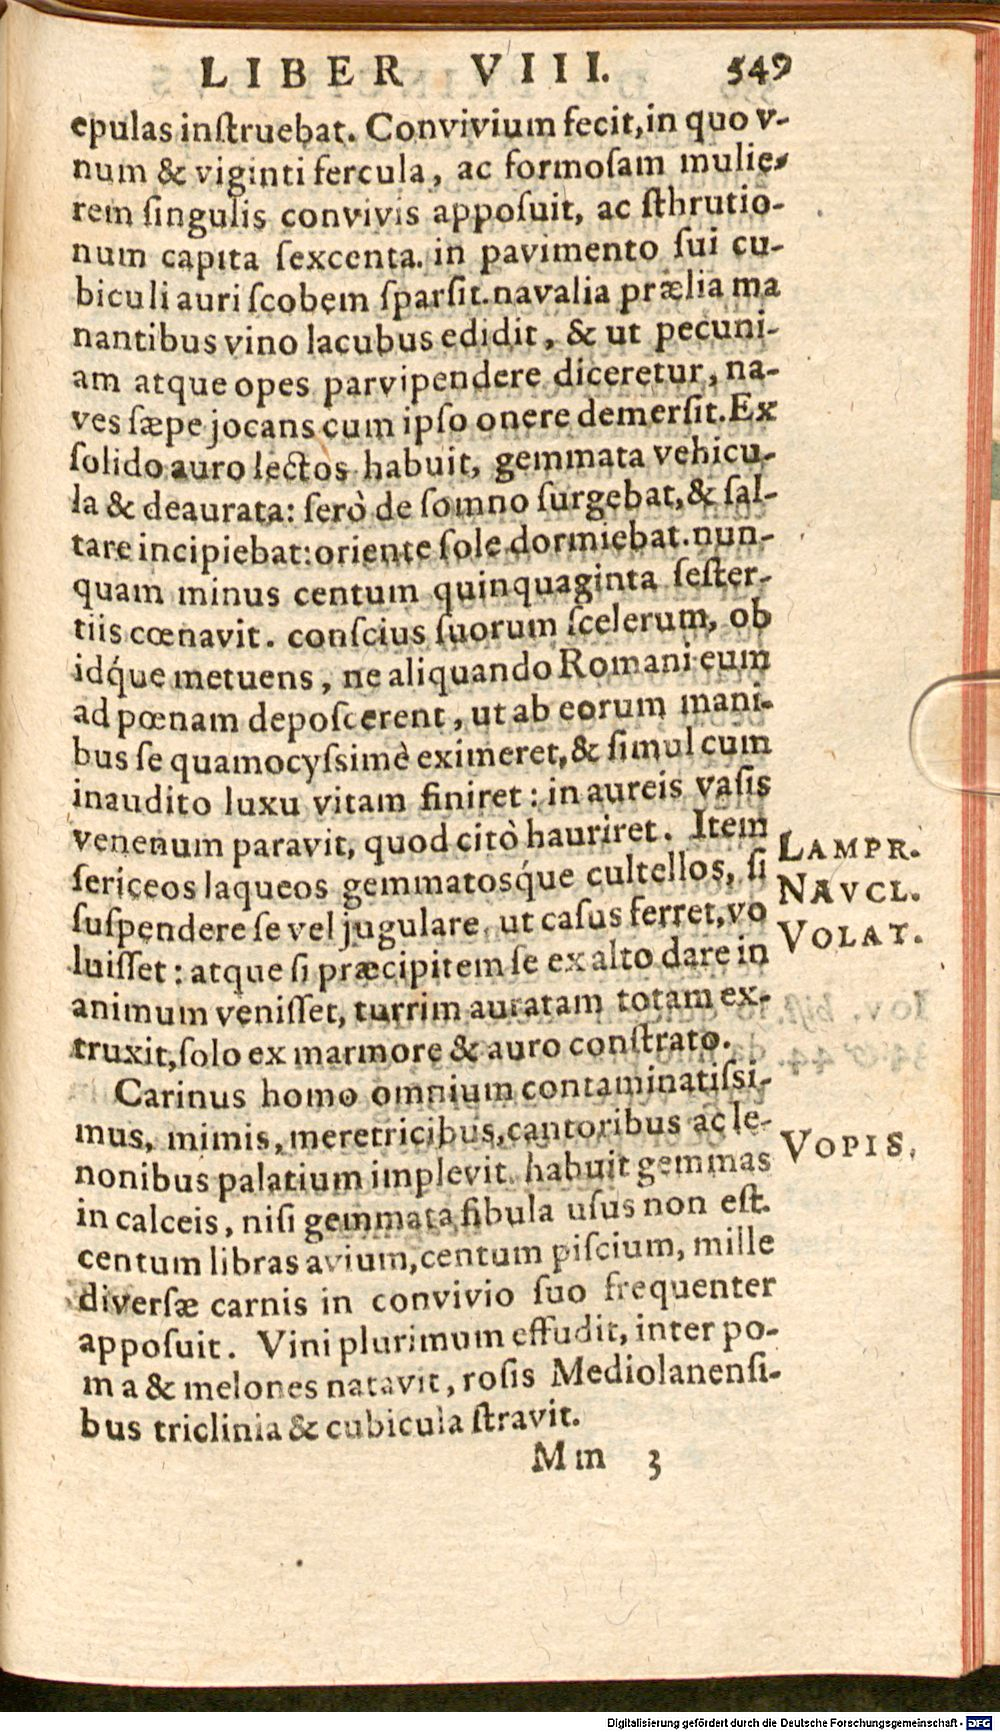 LIBER VIII. 549
epulas inſtruebat. Convivium fecit, in quo v-
num & viginti fercula, ac formoſam mulie-
rem ſingulis convivis appoſuit, ac ſthrutio-
num capita ſexcenta. in pavimento ſui cu-
biculi auri ſcobem ſparſit. navalia prælia ma
nantibus vino lacubus edidit, & ut pecuni-
am atque opes parvipendere diceretur, na-
ves ſæpe jocans cum ipſo onere demerſit. Ex
ſolido auro lectos habuit, gemmata vehicu-
la & deaurata: ſerò de ſomno ſurgebat, & ſal-
tare incipiebat: oriente ſole dormiebat. nun-
quam minus centum quinquaginta ſeſter-
tiis cœnavit. conſcius ſuorum ſcelerum, ob
idq́ue metuens, ne aliquando Romani eum
ad pœnam depoſcerent, ut ab eorum mani-
bus ſe quamocyſsimè eximeret, & ſimul cum
inaudito luxu vitam finiret: in aureis vaſis
venenum paravit, quod citò hauriret. Item
ſericeos laqueos gemmatosq́ue cultellos, ſi
ſuſpendere ſe vel jugulare, ut caſus ferret, vo
luiſſet: atque ſi præcipitem ſe ex alto dare in
animum veniſſet, turrim auratam totam ex-
truxit, ſolo ex marmore & auro conſtrato.
LAMPR.
NAVCL.
VOLAT.
Carinus homo omnium contaminatiſsi-
mus, mimis, meretricibus, cantoribus ac le-
nonibus palatium implevit. habuit gemmas
in calceis, niſi gemmata fibula uſus non eſt.
centum libras avium, centum piſcium, mille
diverſæ carnis in convivio ſuo frequenter
appoſuit. Vini plurimum effudit, inter po-
ma & melones natavit, roſis Mediolanenſi-
bus triclinia & cubicula ſtravit.
VOPIS.
Mm 3
Digitalisierung gefördert durch die Deutsche Forschungsgemeinschaft - DFG